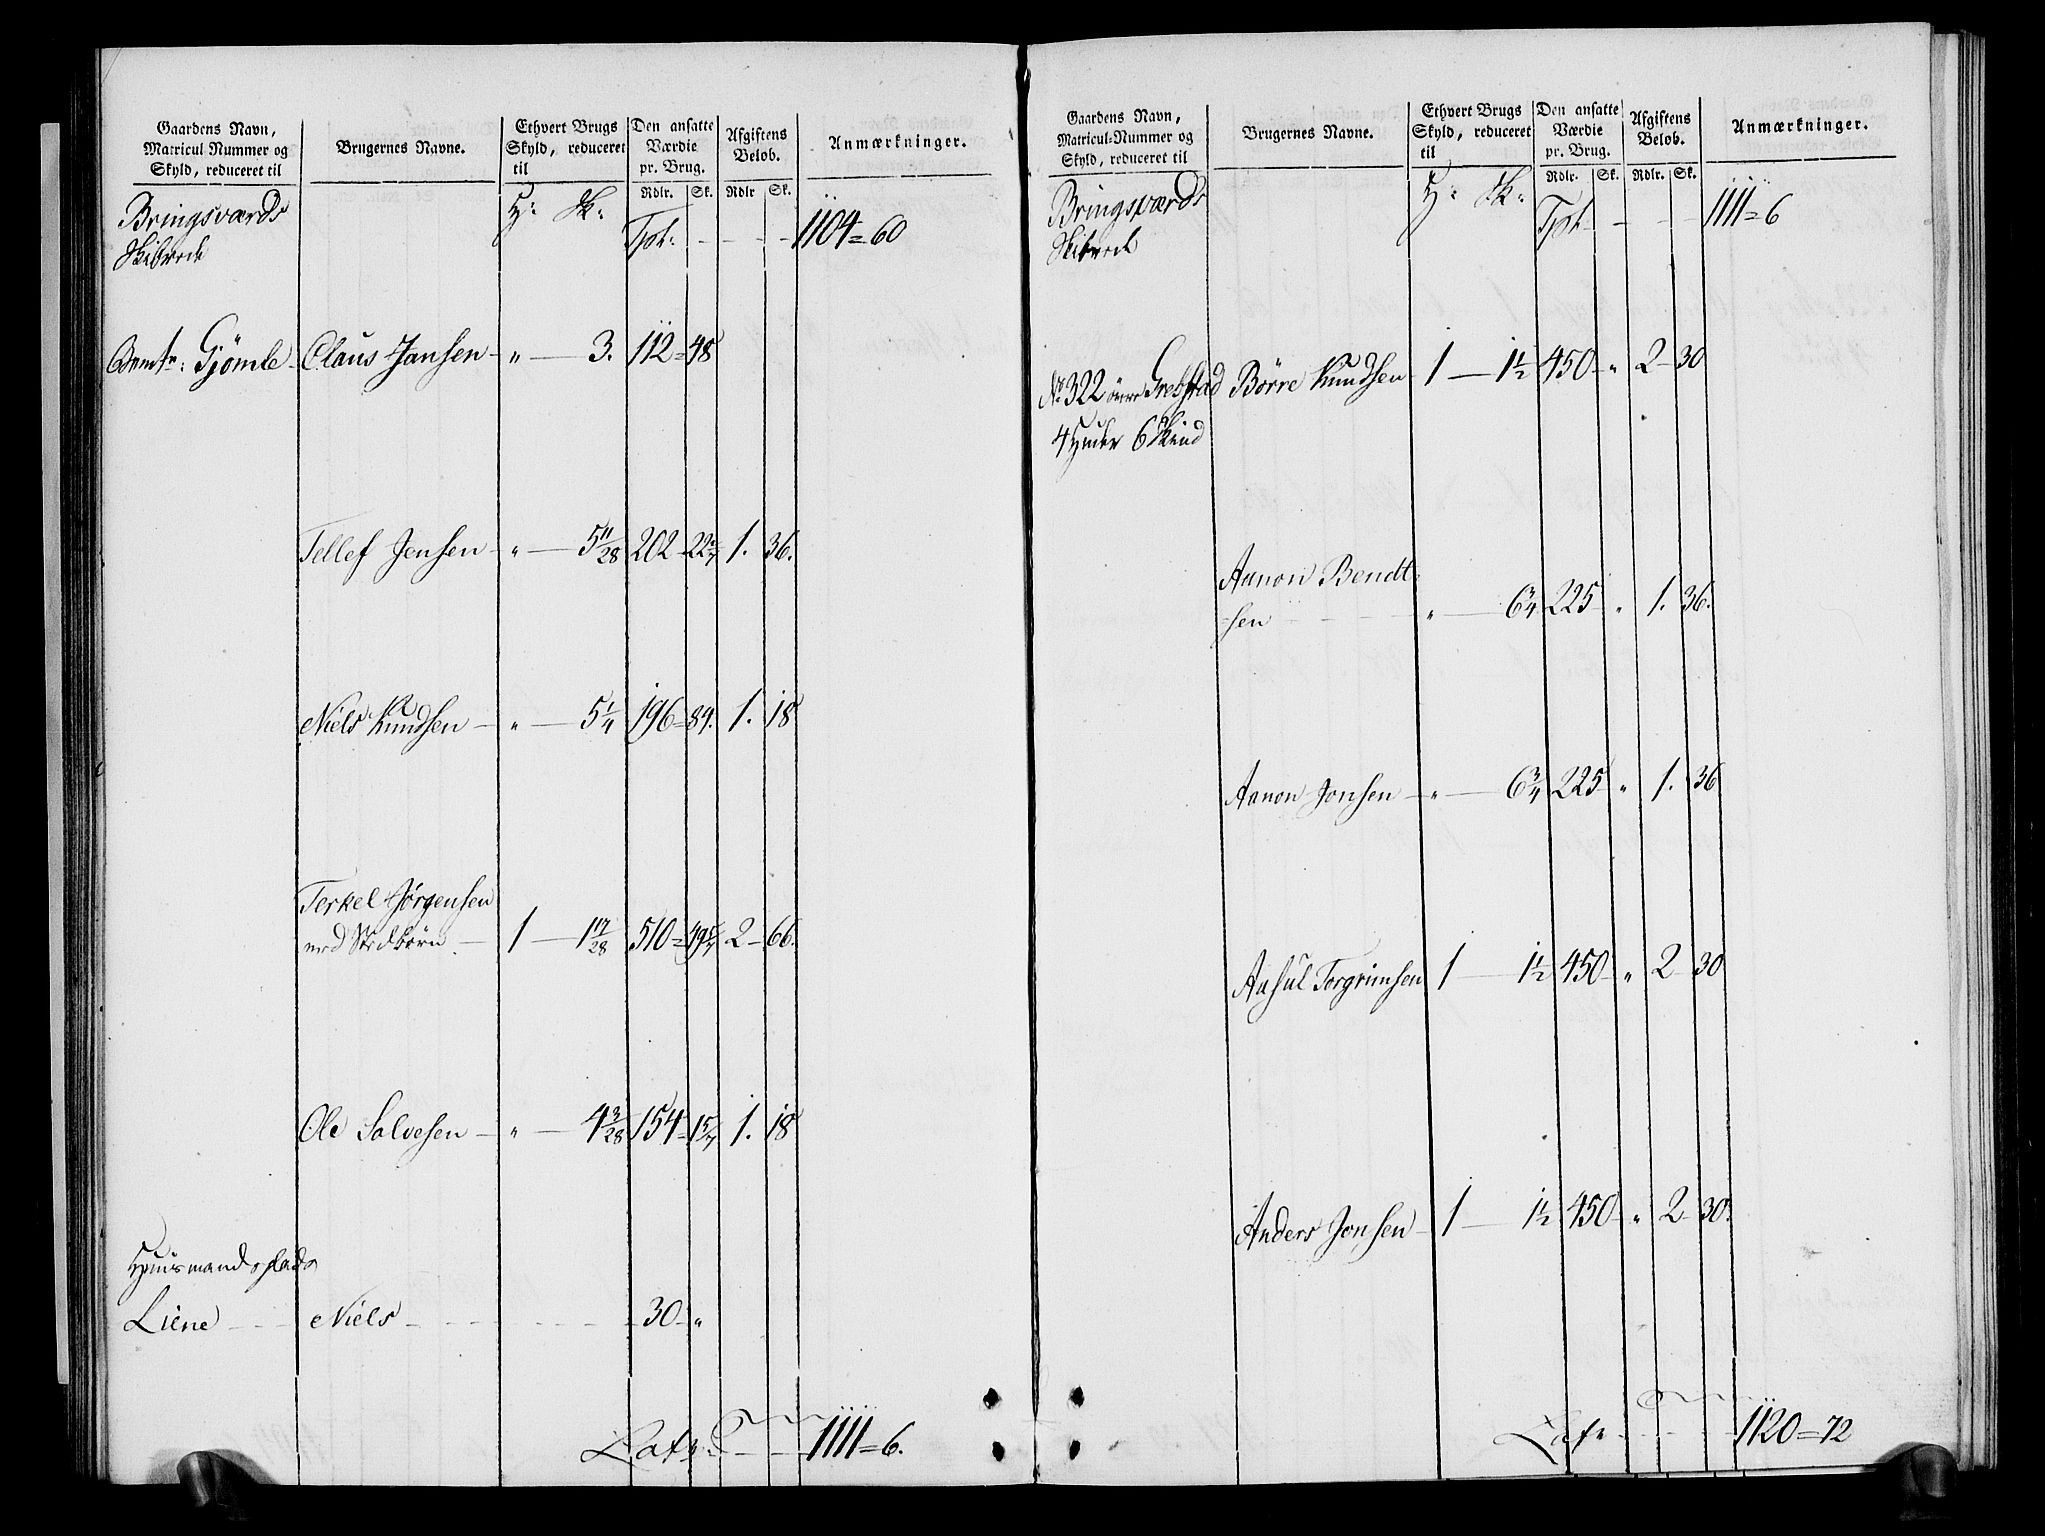 Gaardens Navn,
Matricul Nummer og
Skyld, reduceret til
Brugernes Navne.
Ethvert Brugs
Skyld, reduceret
til
Den ansatte
Værdie
pr. Brug.
Rdlr. Sk.
Afgiftens
Beløb.
Rdlr Sk.
Anmærkninger.
Bringsværds H: Sk: Tpt: - - - - 1104 = 60
Skibrede
Gjømle - Claus Jansen - " - 3. 112 = 48
Tellef Jensen - " - 5 11/28 202 - 22 2/7 1. 36.
Niels Knudsen - " - 5 1/4 196 = 84. 1. 18
Terkel Jørgensen
med Stedbørn - 1 - 1 17/28 510 = 49 5/7 2 - 66.
Ole Salvesen - " - 4 3/28 154 - 15/7 1. 18
Huusmandsplads
Liene - - - Niels - - - - - - 30 - "
Latr: - - - 1111 = 6.
Gaardens Navn,
Matricul-Nummer og
Skyld, reduceret til
Brugernes Navne.
Ethvert Brugs
Skyld, reduceret
til
Den ansatte
Værdie
pr. Brug.
Rdlr. Sk.
Afgiftens
Beløb.
Rdlr. Sk.
Anmærkninger.
Bringsværds H: Sk: Tpt - - - - 1111 = 6
Skibrede
No 322 øvre Grebstad Børre Knudsen - 1 - 1 1/2 450 - " 2 - 30
4 Huder 6 Skind
Aanon Bendt=
=sen - - - - " - 6 3/4 225 - " 1. 36.
Aanon Jonsen - " - 6 3/4 225 - " 1. 36
Aasul Torgrimsen 1 - 1 1/2 450 - " 2 - 30
Anders Jonsen - 1 - 1 1/2 450 - " 2 - 30.
Latr - - - - 1120 = 72